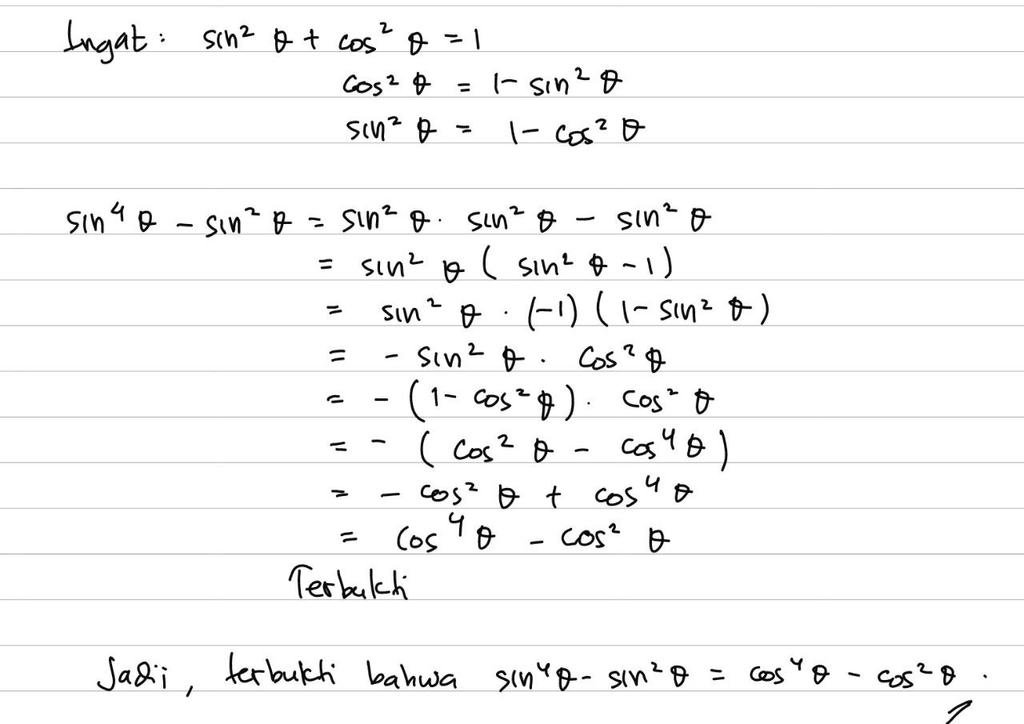 Ingat : sin² θ + cos² θ = 1
cos² θ = 1 - sin² θ
sin² θ = 1 - cos² θ
sin⁴ θ - sin² θ = sin² θ . sin² θ - sin² θ
= sin² θ ( sin² θ - 1 )
= sin² θ . (-1) ( 1 - sin² θ )
= - sin² θ . cos² θ
= - ( 1 - cos² θ ) . cos² θ
= - ( cos² θ - cos⁴ θ )
= - cos² θ + cos⁴ θ
= cos⁴ θ - cos² θ
Terbukti
Jadi, terbukti bahwa sin⁴ θ - sin² θ = cos⁴ θ - cos² θ .